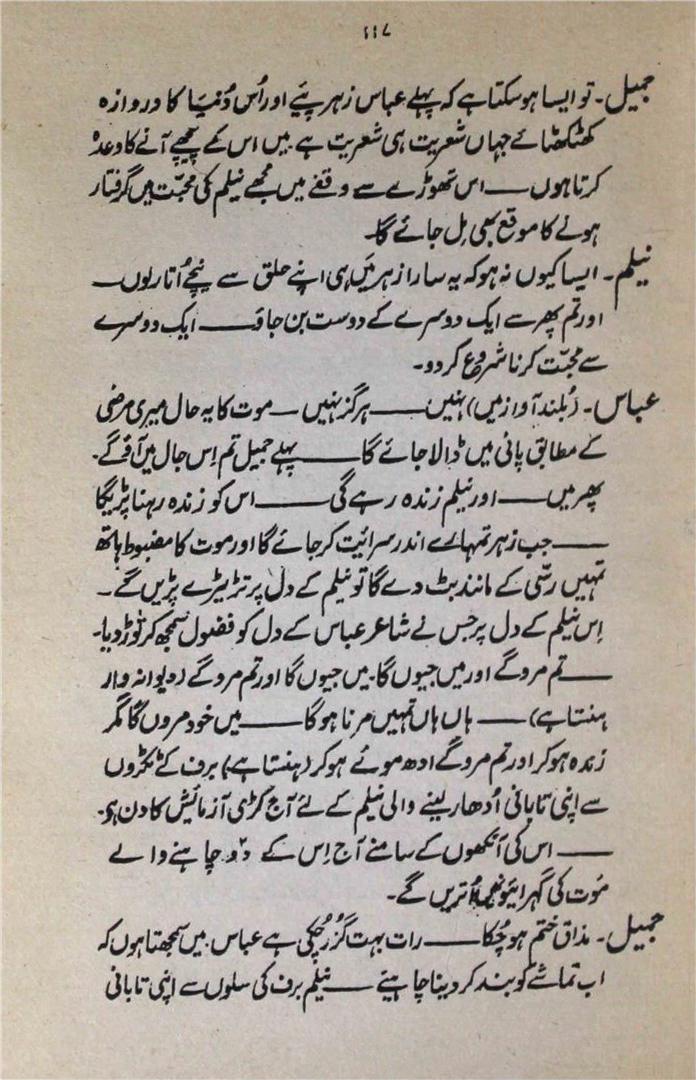 ۱۱۷
جمیل۔ تو ایسا ہو سکتا ہے کہ پہلے عباس زہر پئے اور اُس دُنیا کا دروازہ
کھٹکھٹائے جہاں شعریت ہی شعریت ہے میں اس کے پیچھے آنے کا وعدہ
کرتا ہوں ــــ اس تھوڑے سے وقفے میں مجھے نیلم کی محبّت میں گرفتار
ہونے کا موقع بھی مِل جائے گا۔
نیلم۔ ایسا کیوں نہ ہو کہ یہ سارا زہر مَیں ہی اپنے حلق سے نیچے اُتار لوں ــــ
اور تم پھر سے ایک دوسرے کے دوست بن جاؤ ــــ ایک دوسرے
سے محبّت کرنا شروع کر دو۔
عباس۔ (بُلند آواز میں) نہیں ــــ ہرگز نہیں ــــ موت کا یہ حال میری مرضی
کے مطابق پانی میں ڈالا جائے گا ــــ پہلے جمیل تم اِس جال میں آؤ گے۔
پھر میں ــــ اور نیلم زندہ رہے گی ــــ اس کو زندہ رہنا پڑیگا
ــــ جب زہر تمہارے اندر سرائیت کر جائے گا اور موت کا مضبوط ہاتھ
تمہیں رسّی کے مانند بٹ دے گا تو نیلم کے دل پر تڑیڑے پڑیں گے۔
اِس نیلم کے دل پر جس نے شاعر عباس کے دل کو فضول سمجھ کر توڑ دیا۔
ــــ تم مرو گے اور میں جیوں گا۔ میں جیوں گا اور تم مرو گے (دیوانہ وار
ہنستا ہے) ــــ ہاں ہاں تمہیں مرنا ہو گا ــــ میں خود مروں گا مگر
زندہ ہو کر اور تم مرو گے ادھ موئے ہو کر (ہنستا ہے) برف کے ٹکڑوں
سے اپنی تابانی اُدھار لینے والی نیلم کے لئے آج کڑی آزمائش کا دن ہے۔
ــــ اس کی آنکھوں کے سامنے آج اِس کے دو چاہنے والے
مَوت کی گہرائیوں میں اُتریں گے۔
جمیل۔ مذاق ختم ہو چُکا ــــ رات بہت گزُر چُکی ہے عباس۔ میں سمجھتا ہوں کہ
اب تماشے کو بند کر دینا چاہیئے ــــ نیلم برف کی سلوں سے اپنی تابانی